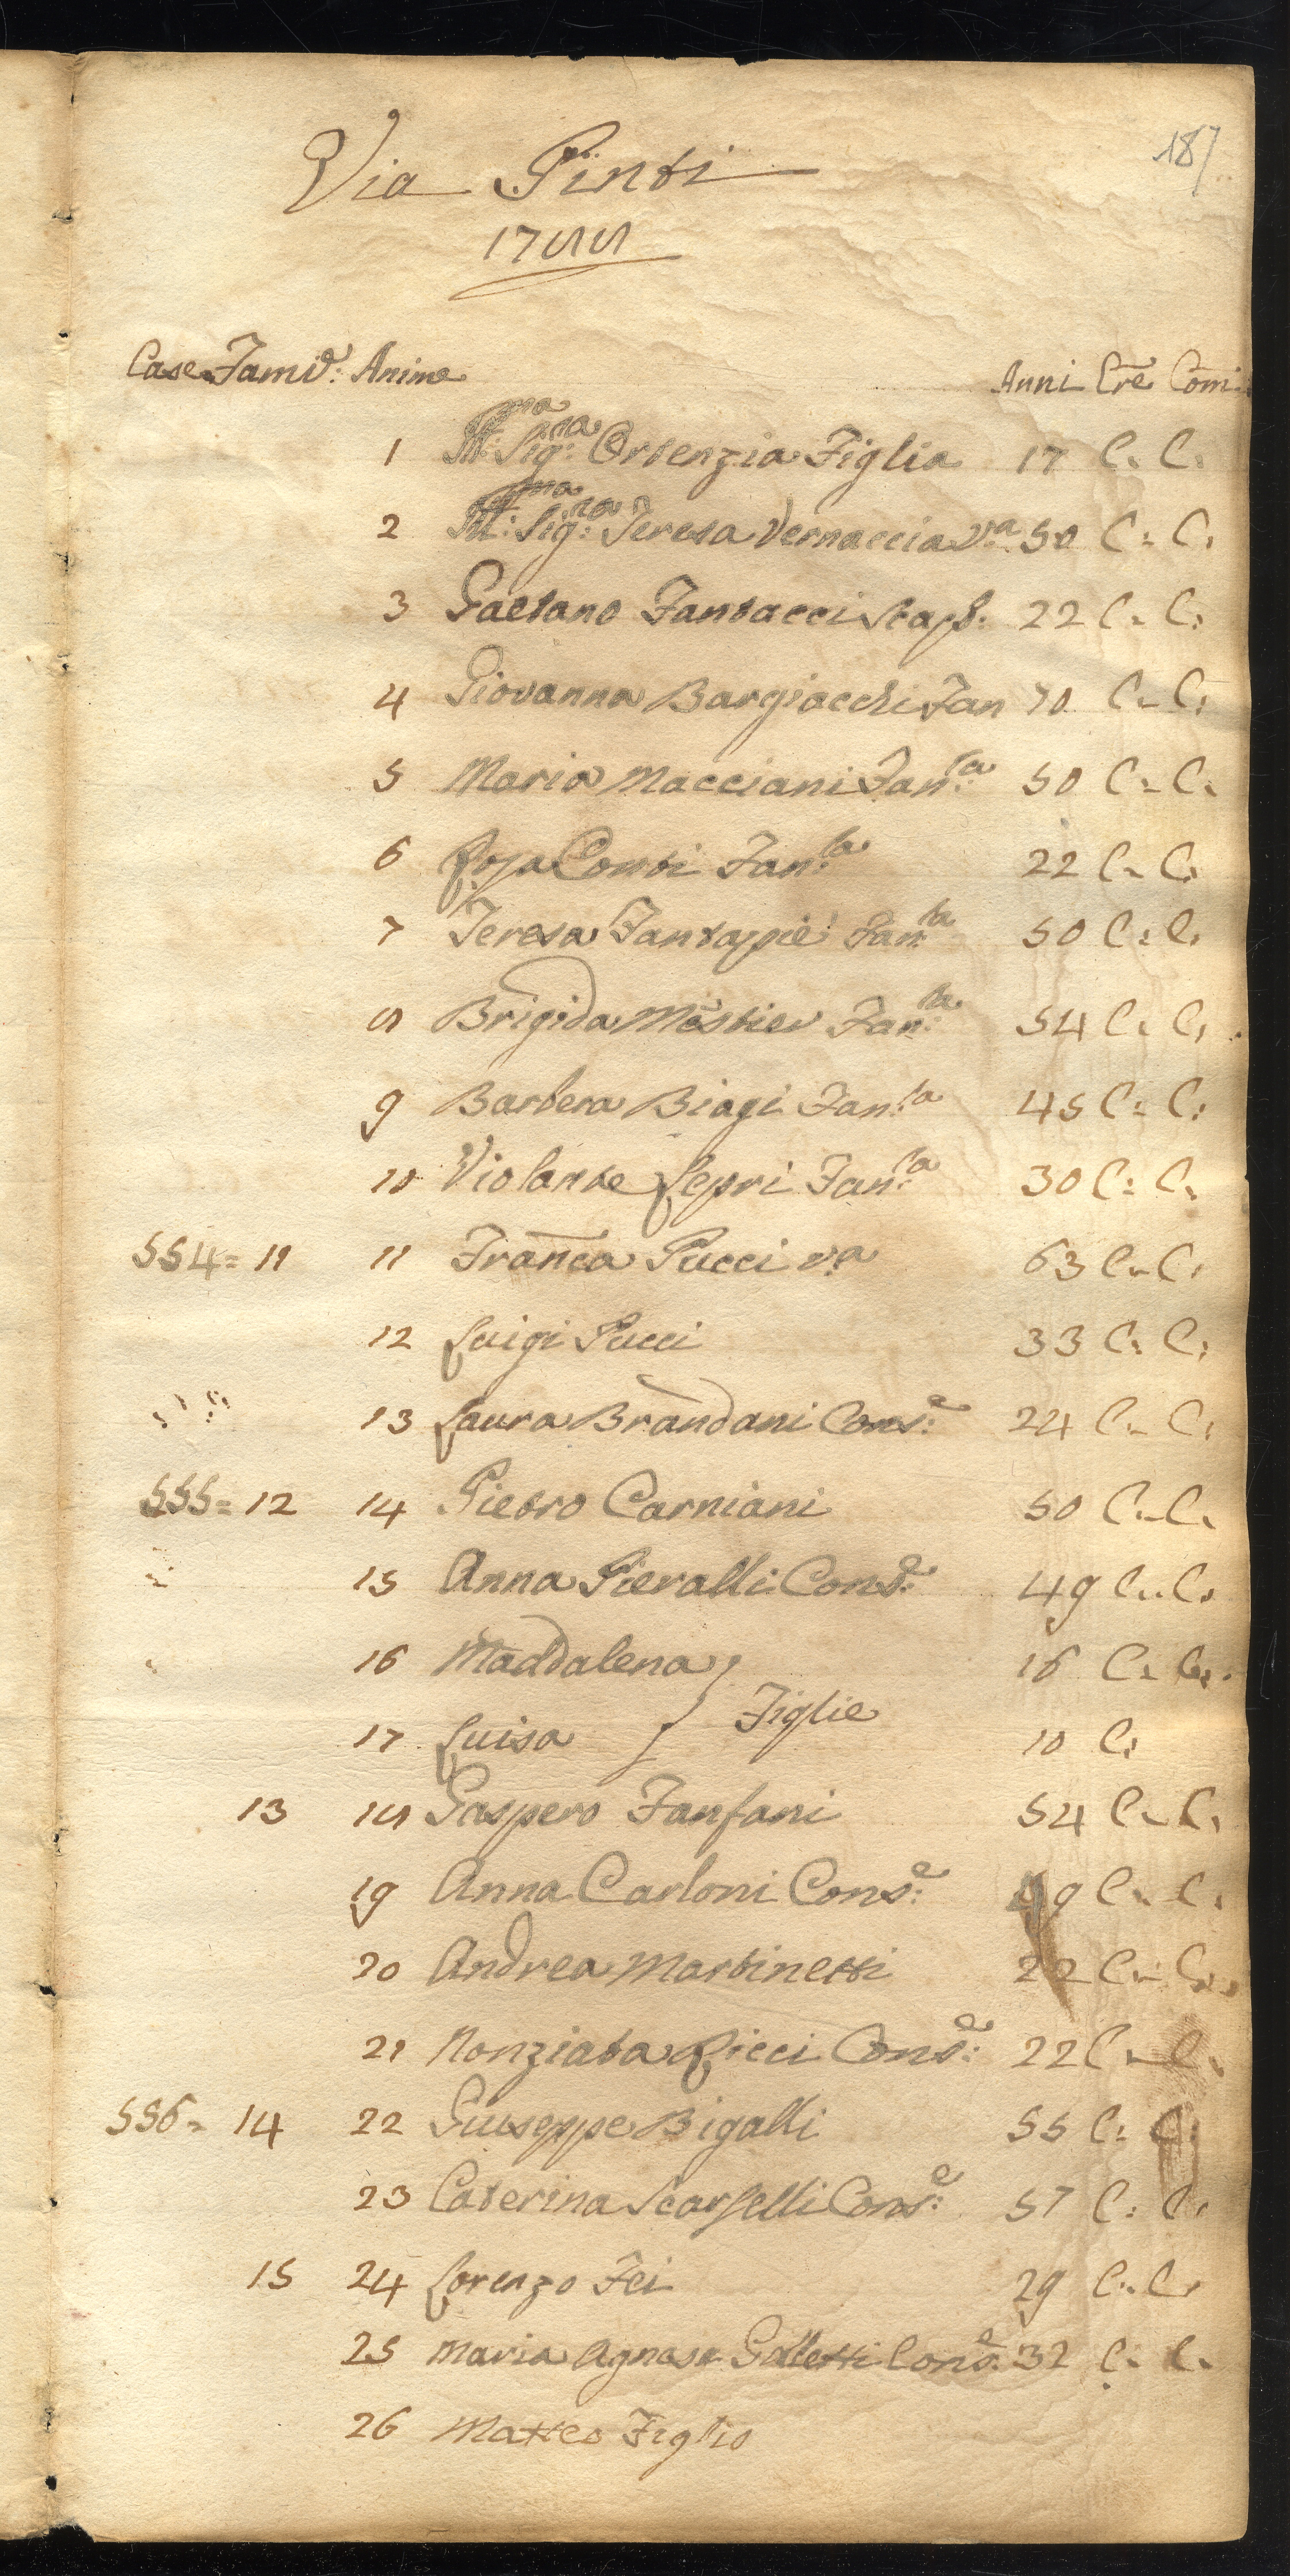 187
Via Pinti
1788
Case Famil: Anime Anni Cre Com:
1 Ill:ma Sig:na Ortenzia Figlia 17 C. C.
2 Ill:ma Sig:ra Teresa Vernaccia V:a 50 C: C:
3 Gaetano Fantacci Stap: 22 C. C:
4 Giovanna Bargiacchi Fan 70 C. C:
5 Maria Macciani Fan:ta 50 C. C.
6 Rosa Conti Fan:ta 22 C. C.
7 Teresa Fantappiè Fan:ta 50 C: C.
8 Brigida Fan:ta 54 C. C.
9 Barbera Biagi Fan:ta 45 C: C:
10 Violante Lepri Fan:ta 30 C: C.
554= 11 11 Franca Pucci v:a 63 C. C.
12 Luigi Pucci 33 C: C:
13 Laura Brandani Cons:e 24 C. C.
555= 12 14 Pietro Carniani 50 C. C.
15 Anna Pieralli Cons:e 49 C. C.
16 Maddalena 16 C. C.
Figlie
17 Luisa 10 C:
13 18 Gaspero Fanfani 54 C. C.
19 Anna Carloni Cons:e 49 C. C.
20 Andrea Martinetti 22 C. C.
21 Nonziata Ricci Cons:e 22 C. C.
556= 14 22 Giuseppe Bigalli 55 C: C:
23 Caterina Scarselli Cons:e 57 C: C:
15 24 Lorenzo Fei 29 C. C.
25 Maria Agnese Galletti Cons:e 32 C. C.
26 Matteo Figlio